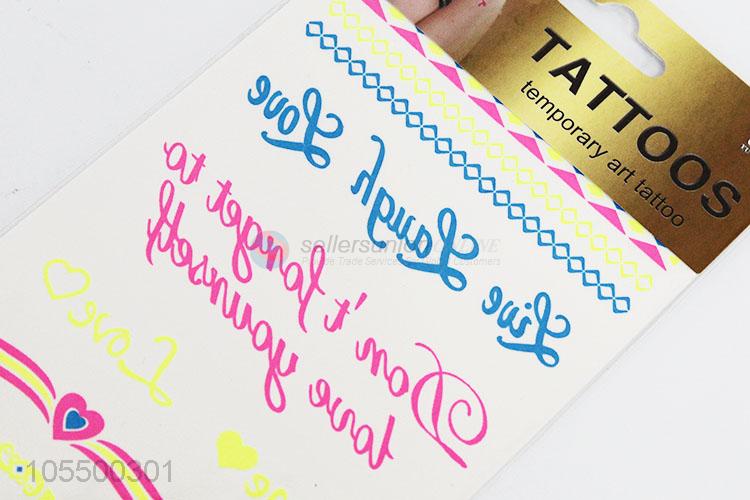 TATTOOS
temporary art tattoo
Live Laugh Love
Don't forget to
love yourself
Love
sellersunionONLINE
Provide Trade Service
Customers
105500301